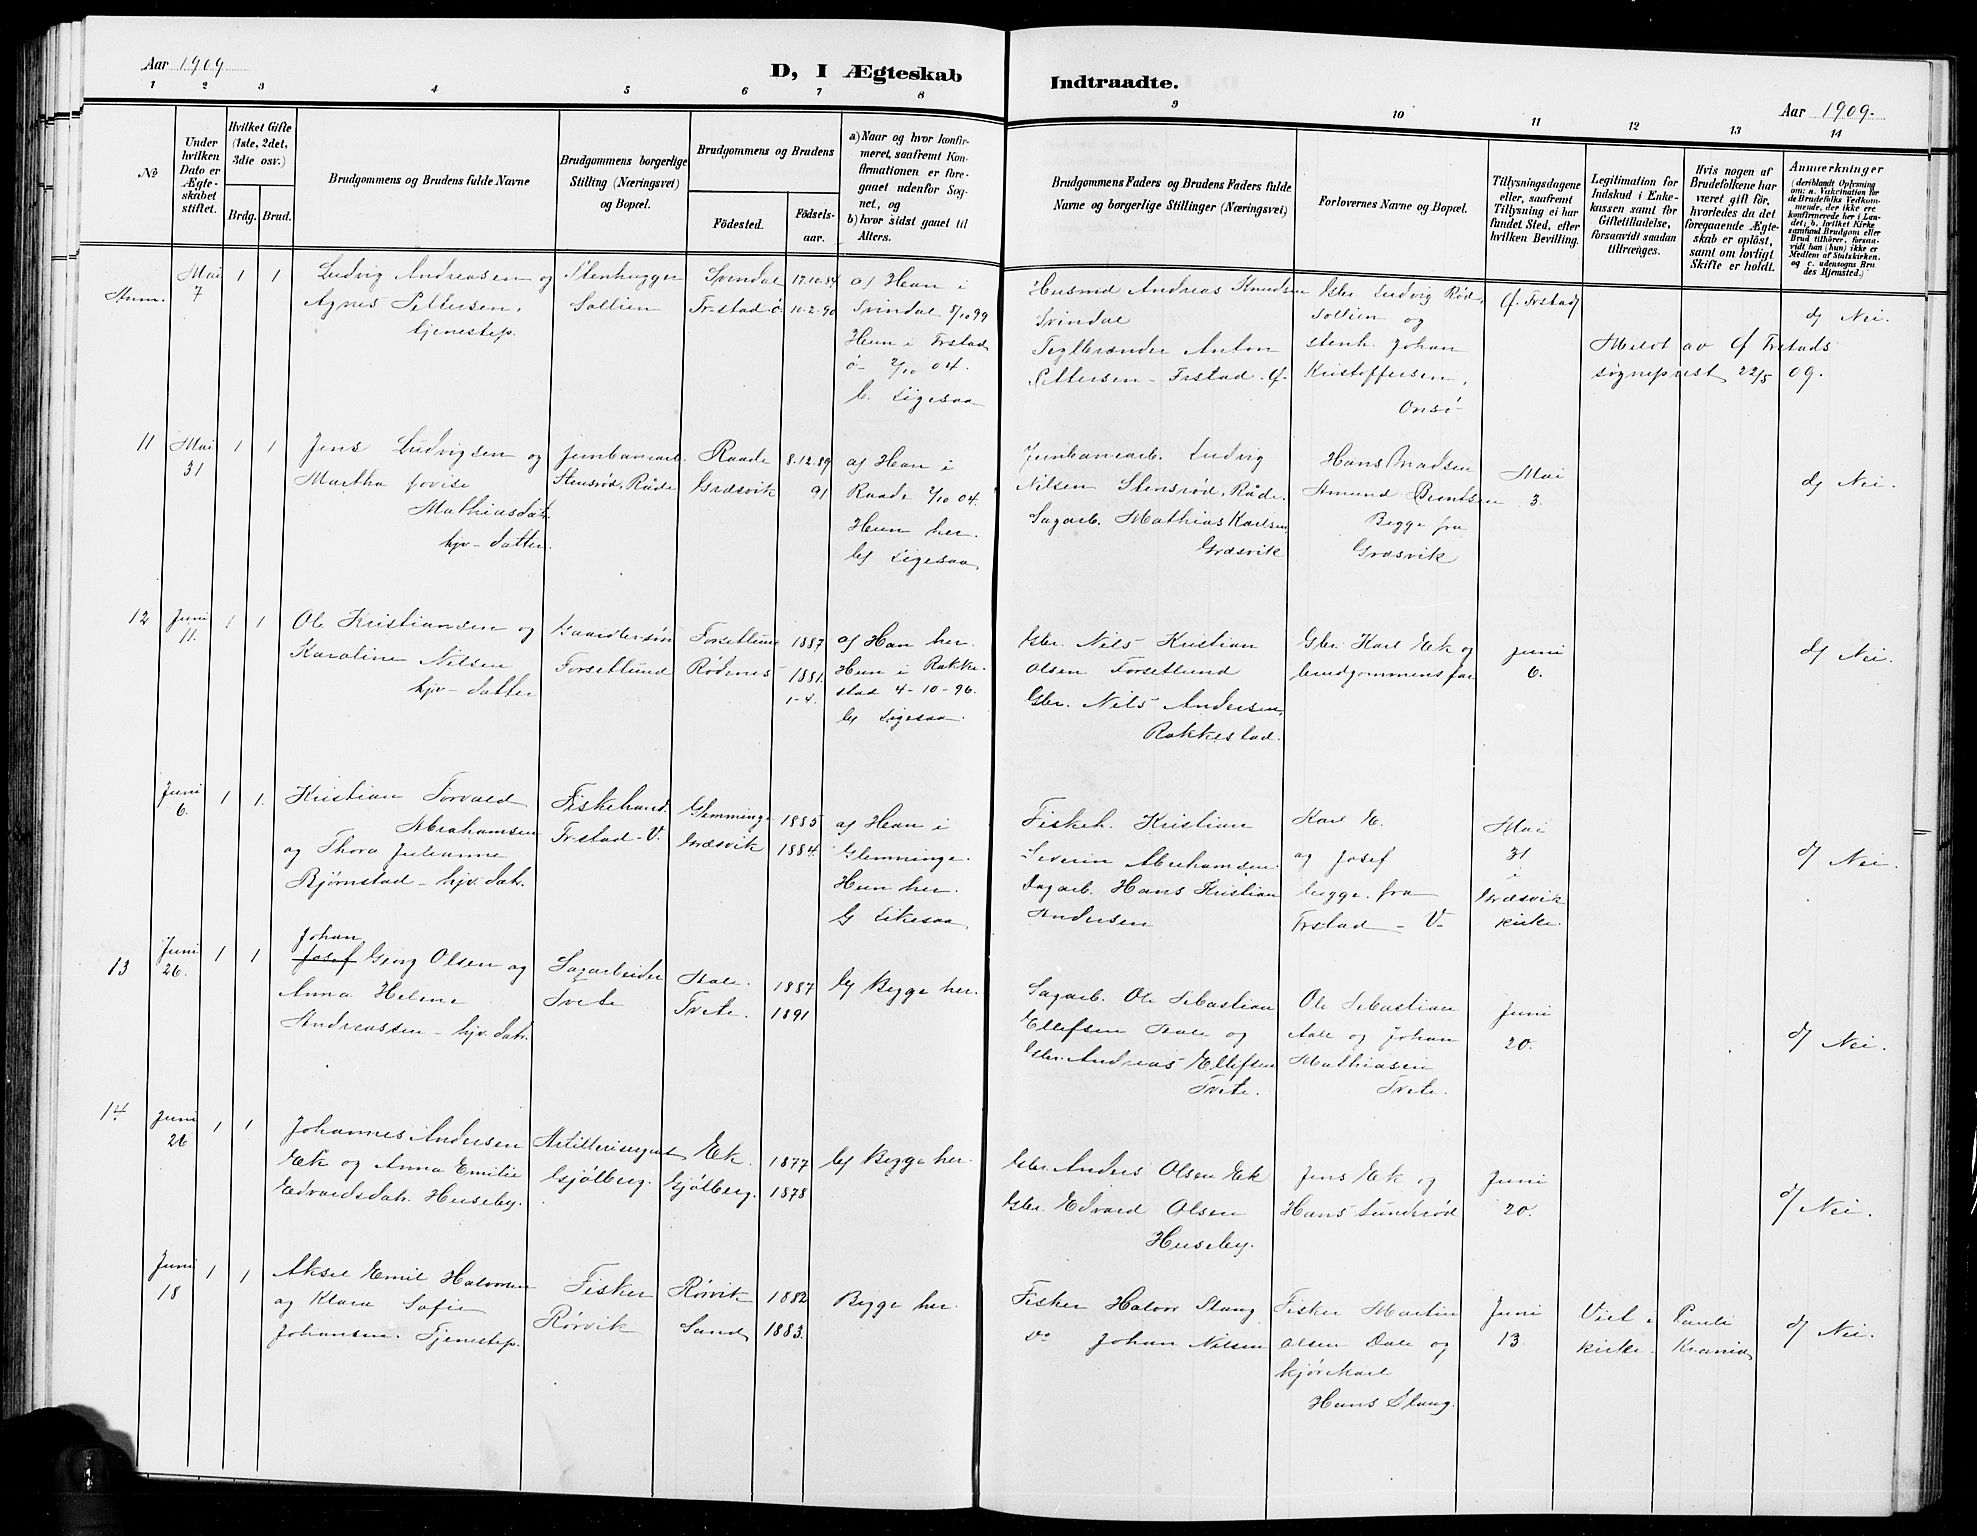 Aar 1909
D, I Ægteskab
Indtraadte.
Aar 1909.
1 2 3 4 5 6 7 8 9 10 11 12 13 14
No
Under hvilken Dato er Ægteskabet stiftet.
Hvilket Gifte (1ste, 2det, 3die osv.)
Brdg. Brud.
Brudgommens og Brudens fulde Navne
Brudgommens borgerlige Stilling (Næringsvei) og Bopæl.
Brudgommens og Brudens
Fødested. Fødselsaar.
a) Naar og hvor konfirmeret, saafremt Konfirmationen er foregaaet udenfor Sognet, og
b) hvor sidst gaaet til Alters.
Brudgommens Faders og Brudens Faders fulde Navne og borgerlige Stillinger (Næringsvei)
Forlovernes Navne og Bopæl.
Tillysningsdagene eller, saafremt Tillysning ei har fundet Sted, efter hvilken Bevilling.
Legitimation for Indskud i Enkekassen samt for Giftetilladelse, forsaavidt saadan tiltrænges.
Hvis nogen af Brudefolkene har været gift før, hvorledes da det foregaaende Ægteskab er opløst, samt om lovligt Skifte er holdt.
Anmerkninger
(deriblandt Oplysning om: a. Vakcination for de Brudefolks Vedkommende, der ikke ere konfirmerede her i Landet; b. hvilket Kirkesamfund Brudgom eller Brud tilhører, forsaavidt han (hun) ikke er Medlem af Statskirken, og c. udensogns Brudes Hjemsted.)
Anm.
Mai 7
1 1
Ludvig Andreasen og
Agnes Pettersen,
tjenestep.
Stenhugger
Sollien
Svendal 17.10.84
Fr-stad ø 10.2.90
a) Han i
Svindal 8/10 99
Hun i Frstad
ø- 2/10 04.
b. Ligesaa
Husmd Andreas Knudsen
Svindal
Teglbrænder Anton
Pettersen - Frstad - Ø-
Gbr. Ludvig Rød,
Sollien og
stenh. Johan
Kristoffersen,
Onsø-
Ø. Frstad
Meldt av Ø Frstads
sogneprest 22/5 09.
d) Nei.
11
Mai 31
1 1
Jens Ludvigsen og
Martha Lovise
Mathiasdat.
hjv- datter.
Jernbanearb.
Stensrød, Råde
Raade 8.12.89
Græsvik 91
a) Han i
Raade 2/10 04.
Hun her.
b) Ligesaa,
Jernbanearb. Ludvig
Nilsen Stensrød, Råde.
Sagarb. Mathias Karlsen,
Græsvik
Hans Madsen
Amund Berntsen
Begge fra
Græsvik
Mai
3.
d) Nei.
12
Juni 11.
1 1
Ole Kristiansen og
Karoline Nilsen
hjv- datter
Gaardbrsøn
Forsetlund
Forsetlund 1887
Rødenes 1881.
1-4.
a) Han her.
Hun i Rakkestad
4-10-96.
b) Ligesaa.
Gbr. Nils Kristian
Olsen Forsetlund
Gbr. Nils Andersen,
Rakkestad.
Gbr. Karl Ek og
brudgommens far
Juni
6.
d) Nei.
Juni 6.
1 1.
Kristian Torvald
Abrahamsen
og Thora Julianne
Bjørnstad - hjv. dat.
Fiskehand.
Frstad - V.
Glemminge 1885
Græsvik 1884.
a) Han i
Glemminge.
Hun her.
b) Likesaa,
Fiskeh. Kristian
Severin Abrahamsen.
Dagarb. Hans Kristian
Andersen
Karl E.
og Josef
begge fra
Frstad - V-
Mai
31
i
Græsvik
kirke.
d) Nei.
13
Juni 26.
1 1
Johan
Josef Georg Olsen og
Anna Helene
Andreassen - hjv. dat.
Sagarbeider
Tvete
Aale. 1887
Tvete. 1891
b) Begge her.
Sagarb. Ole Sebastian
Ellefsen Aale og
Gbr. Andreas Ellefsen
Tvete.
Ole Sebastian
Aale og Johan
Mathiasen
Tvete.
Juni
20.
d) Nei.
14
Juni 26
1 1
Johannes Andersen
Ek og Anna Emilie
Edvardsdat. Huseby.
Artillerisergeant
Gjølberg.
Ek. 1877
Gjølberg. 1878
b) Begge her.
Gbr. Anders Olsen Ek
Gbr. Edvard Olsen
Huseby.
Jens Ek og
Hans Lunderød
Juni
20.
d) Nei.
Juni 18
1 1
Aksel Emil Halvorsen
og Klara Sofie
Johansen. Tjenestep.
Fisker
Rørvik
Rørvik 1882
Sand 1883.
Begge her.
Fisker Halvor Slang
do Johan Nilsen
Fisker Martin
Olsen Dale og
kjørekarl
Hans Slang.
Juni
13.
Viet i Pauli
kirke. Krania
d) Nei.